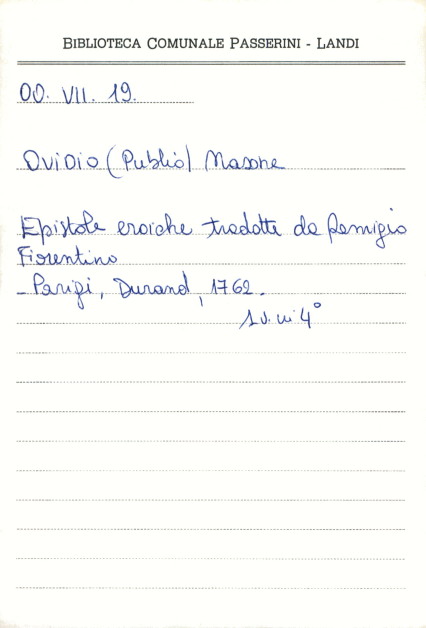 BIBLIOTECA COMUNALE PASSERINI - LANDI
OO. VII. 19.
Ovidio (Publio) Nasone
Epistole eroiche tradotte da Remigio
Fiorentino
- Parigi, Durand, 1762.
1 v. in 4°